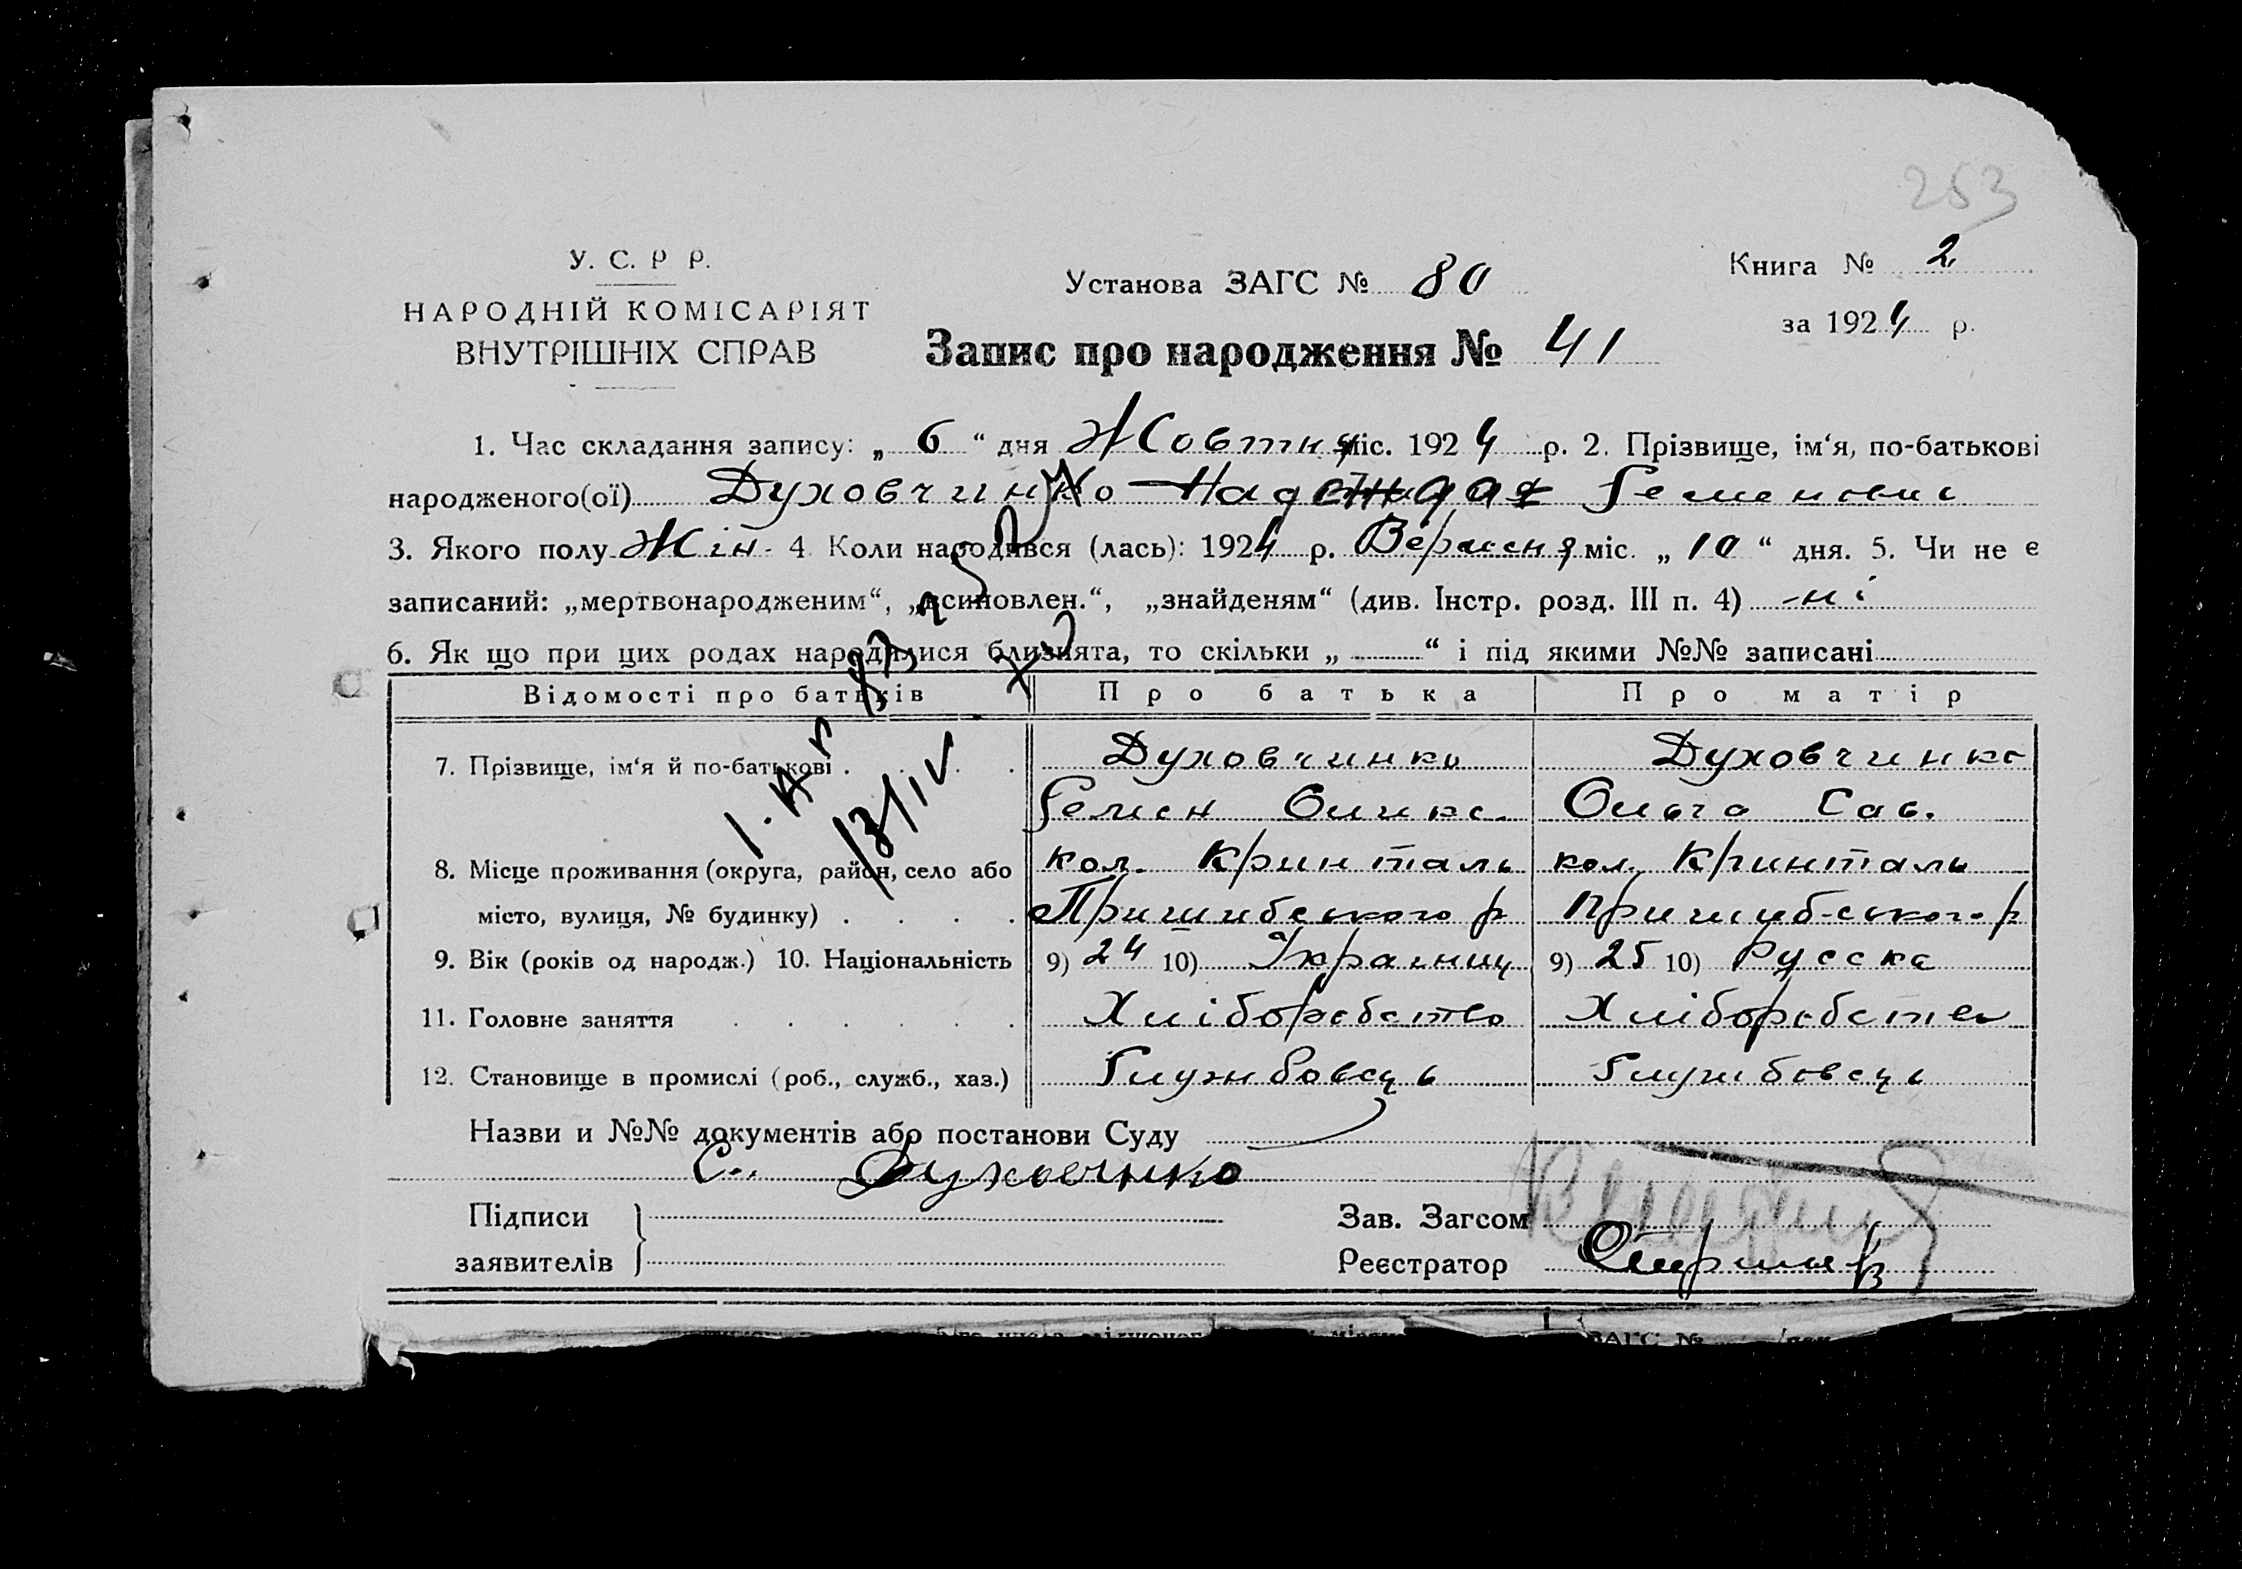 253
У. С. Р Р.
НАРОДНІЙ КОМІСАРІЯТ
ВНУТРІШНІХ СПРАВ
Установа ЗАГС № 80
Книга № 2
за 1924 р.
Запис про народження № 41
1. Час складання запису: „ 6 “ дня Жовтня міс. 1924 р. 2. Прізвище, ім‘я, по-батькові
народженого(ої) Духовчинко Надежда Семеновна
3. Якого полу Жін. 4 Коли народився (лась): 1924 р. Вересня міс. „ 10 “ дня. 5. Чи не є
записаний: „мертвонародженим“, „всиновлен.“, „знайденям“ (див. Інстр. розд. III п. 4) ні
6. Як що при цих родах народилися близнята, то скільки „ “ і під якими №№ записані
Відомості про батьків Про батька Про матір
7. Прізвище, ім‘я й по-батькові Духовчинко Духовчинко
Семен Оликс. Ольга Сав.
8. Місце проживання (округа, район, село або кол. Кринталь кол. Кринталь
місто, вулиця, № будинку) Пришибського р Пришибського р
9. Вік (років од народж.) 10. Національність 9) 24 10) Українец 9) 25 10) Русска
11. Головне заняття Хліборобство Хліборобство
12. Становище в промислі (роб., служб., хаз.) Службовець Службовець
13/IV
Назви и №№ документів або постанови Суду
С. Духовчинко
Підписи
заявителів
Зав. Загсом
Реєстратор
ЗАГС №